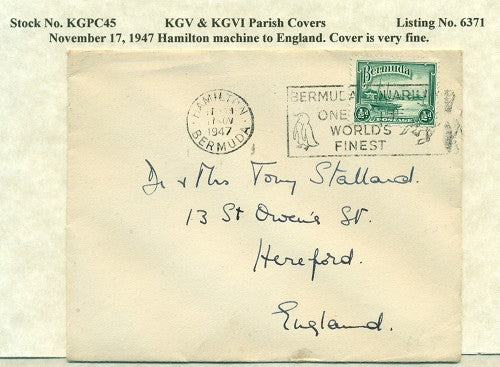 Stock No. KGPC45 KGV & KGVI Parish Covers Listing No. 6371
November 17, 1947 Hamilton machine to England. Cover is very fine.
Bermuda
½d ½d
POSTAGE
HAMILTON
NOV
1947
BERMUDA
BERMUDA AQUARIUM
ONE
WORLD'S
FINEST
Dr & Mrs Tony Stalland.
13 St Owen's St.
Hereford.
England.